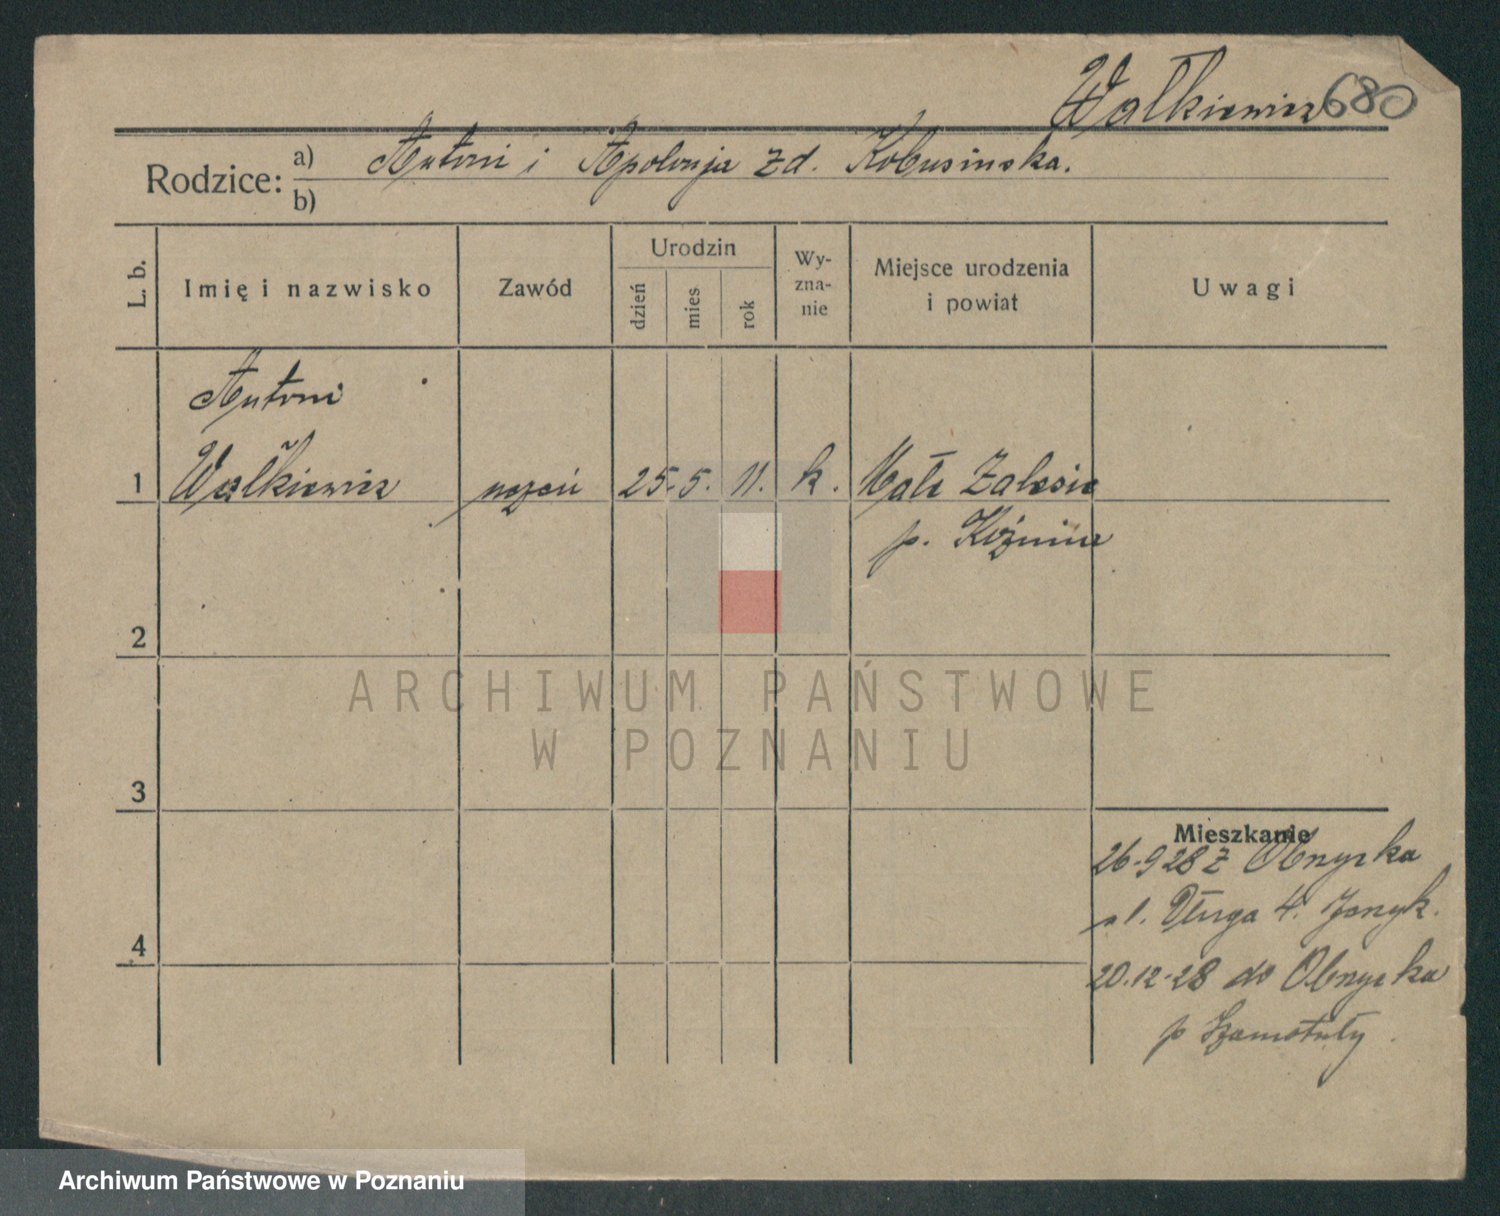 Wałkiewicz 680
Rodzice: a) Antoni i Apolonja zd. Kobusinska.
b)
L. b.
Imię i nazwisko
Zawód
Urodzin
dzień
mies
rok
Wy-
zna-
nie
Miejsce urodzenia
i powiat
Uwagi
Antoni
1 Wałkiewicz uczeń 25. 5. 11. k. Małe Zalesie
p. Koźmin
2
ARCHIWUM PAŃSTWOWE
W POZNANIU
3
Mieszkanie
26-9 28 z Obrzycka
ul. Długa 4.
4
20.12-28 do Obrzycka
p Szamotuły
Archiwum Państwowe w Poznaniu